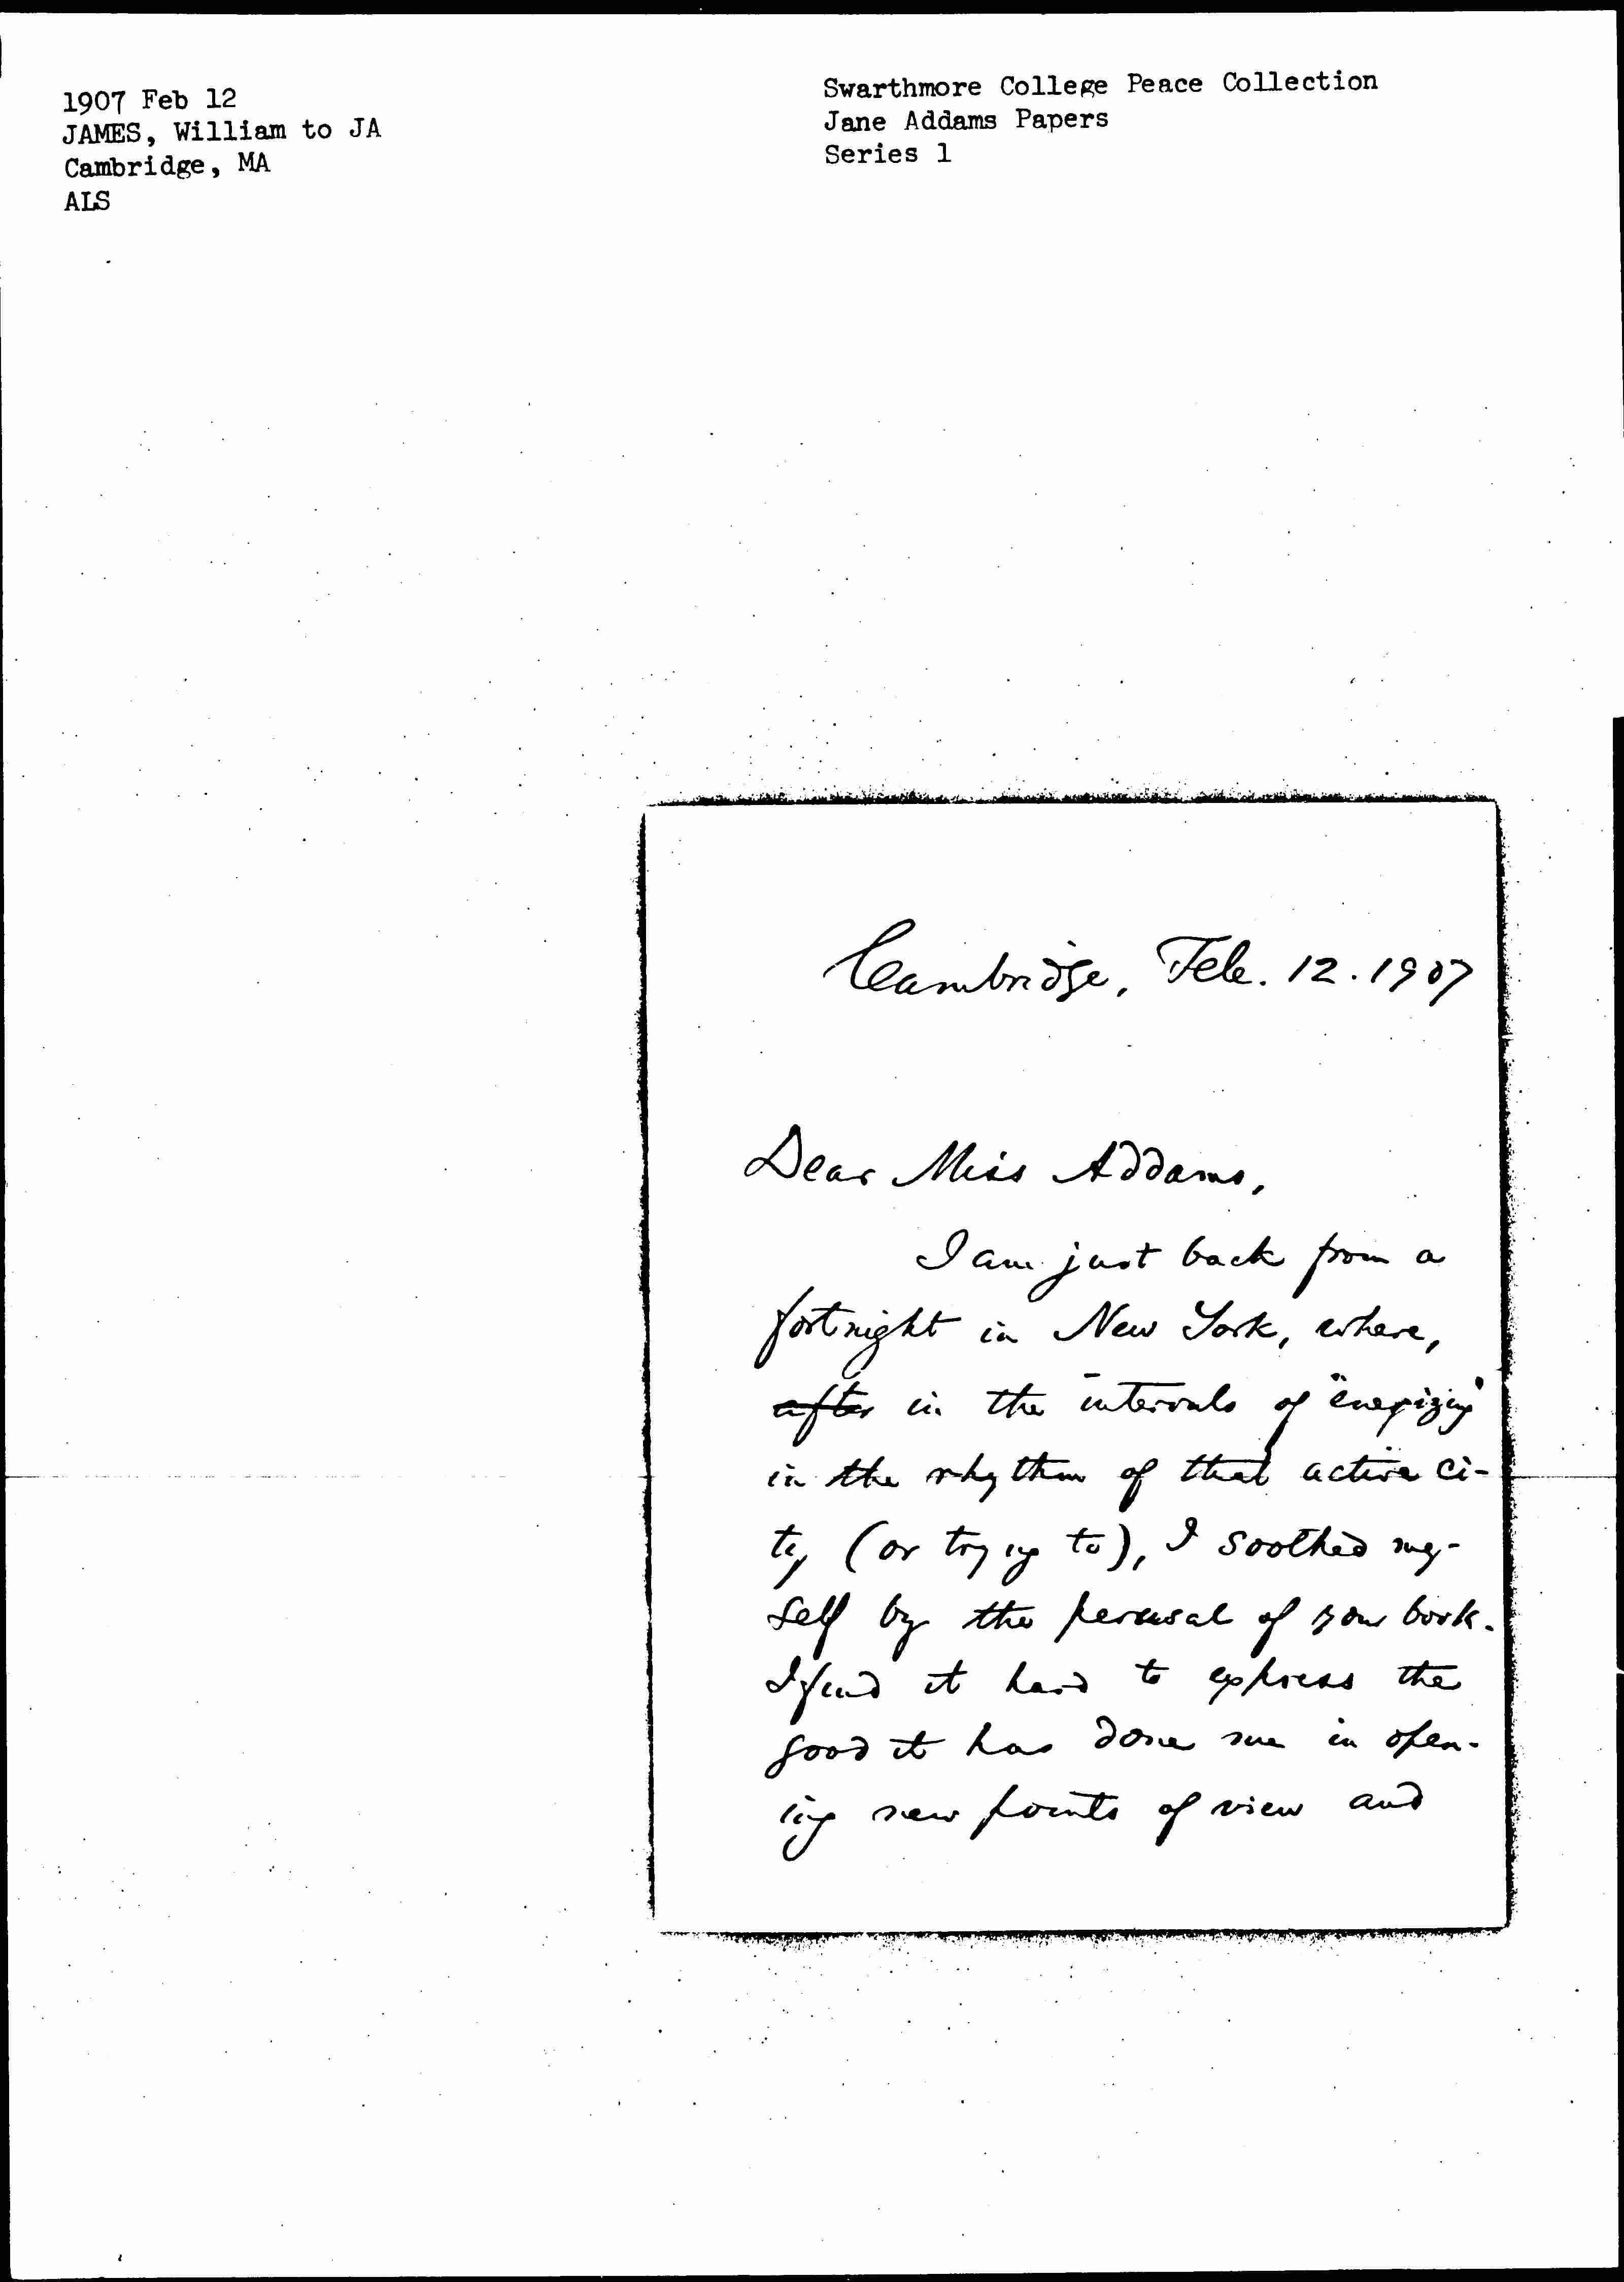 1907 Feb 12
JAMES, William to JA
Cambridge, MA
ALS
Swarthmore College Peace Collection
Jane Addams Papers
Series 1
Cambridge, Feb. 12. 1907
Dear Miss Addams,
I am just back from a
fortnight in New York, where,
after in the intervals of "energizing"
in the rhythm of that active ci-
ty (or trying to), I soothed my-
self by the perusal of your book.
I find it hard to express the
good it has done me in open-
ing new points of view and